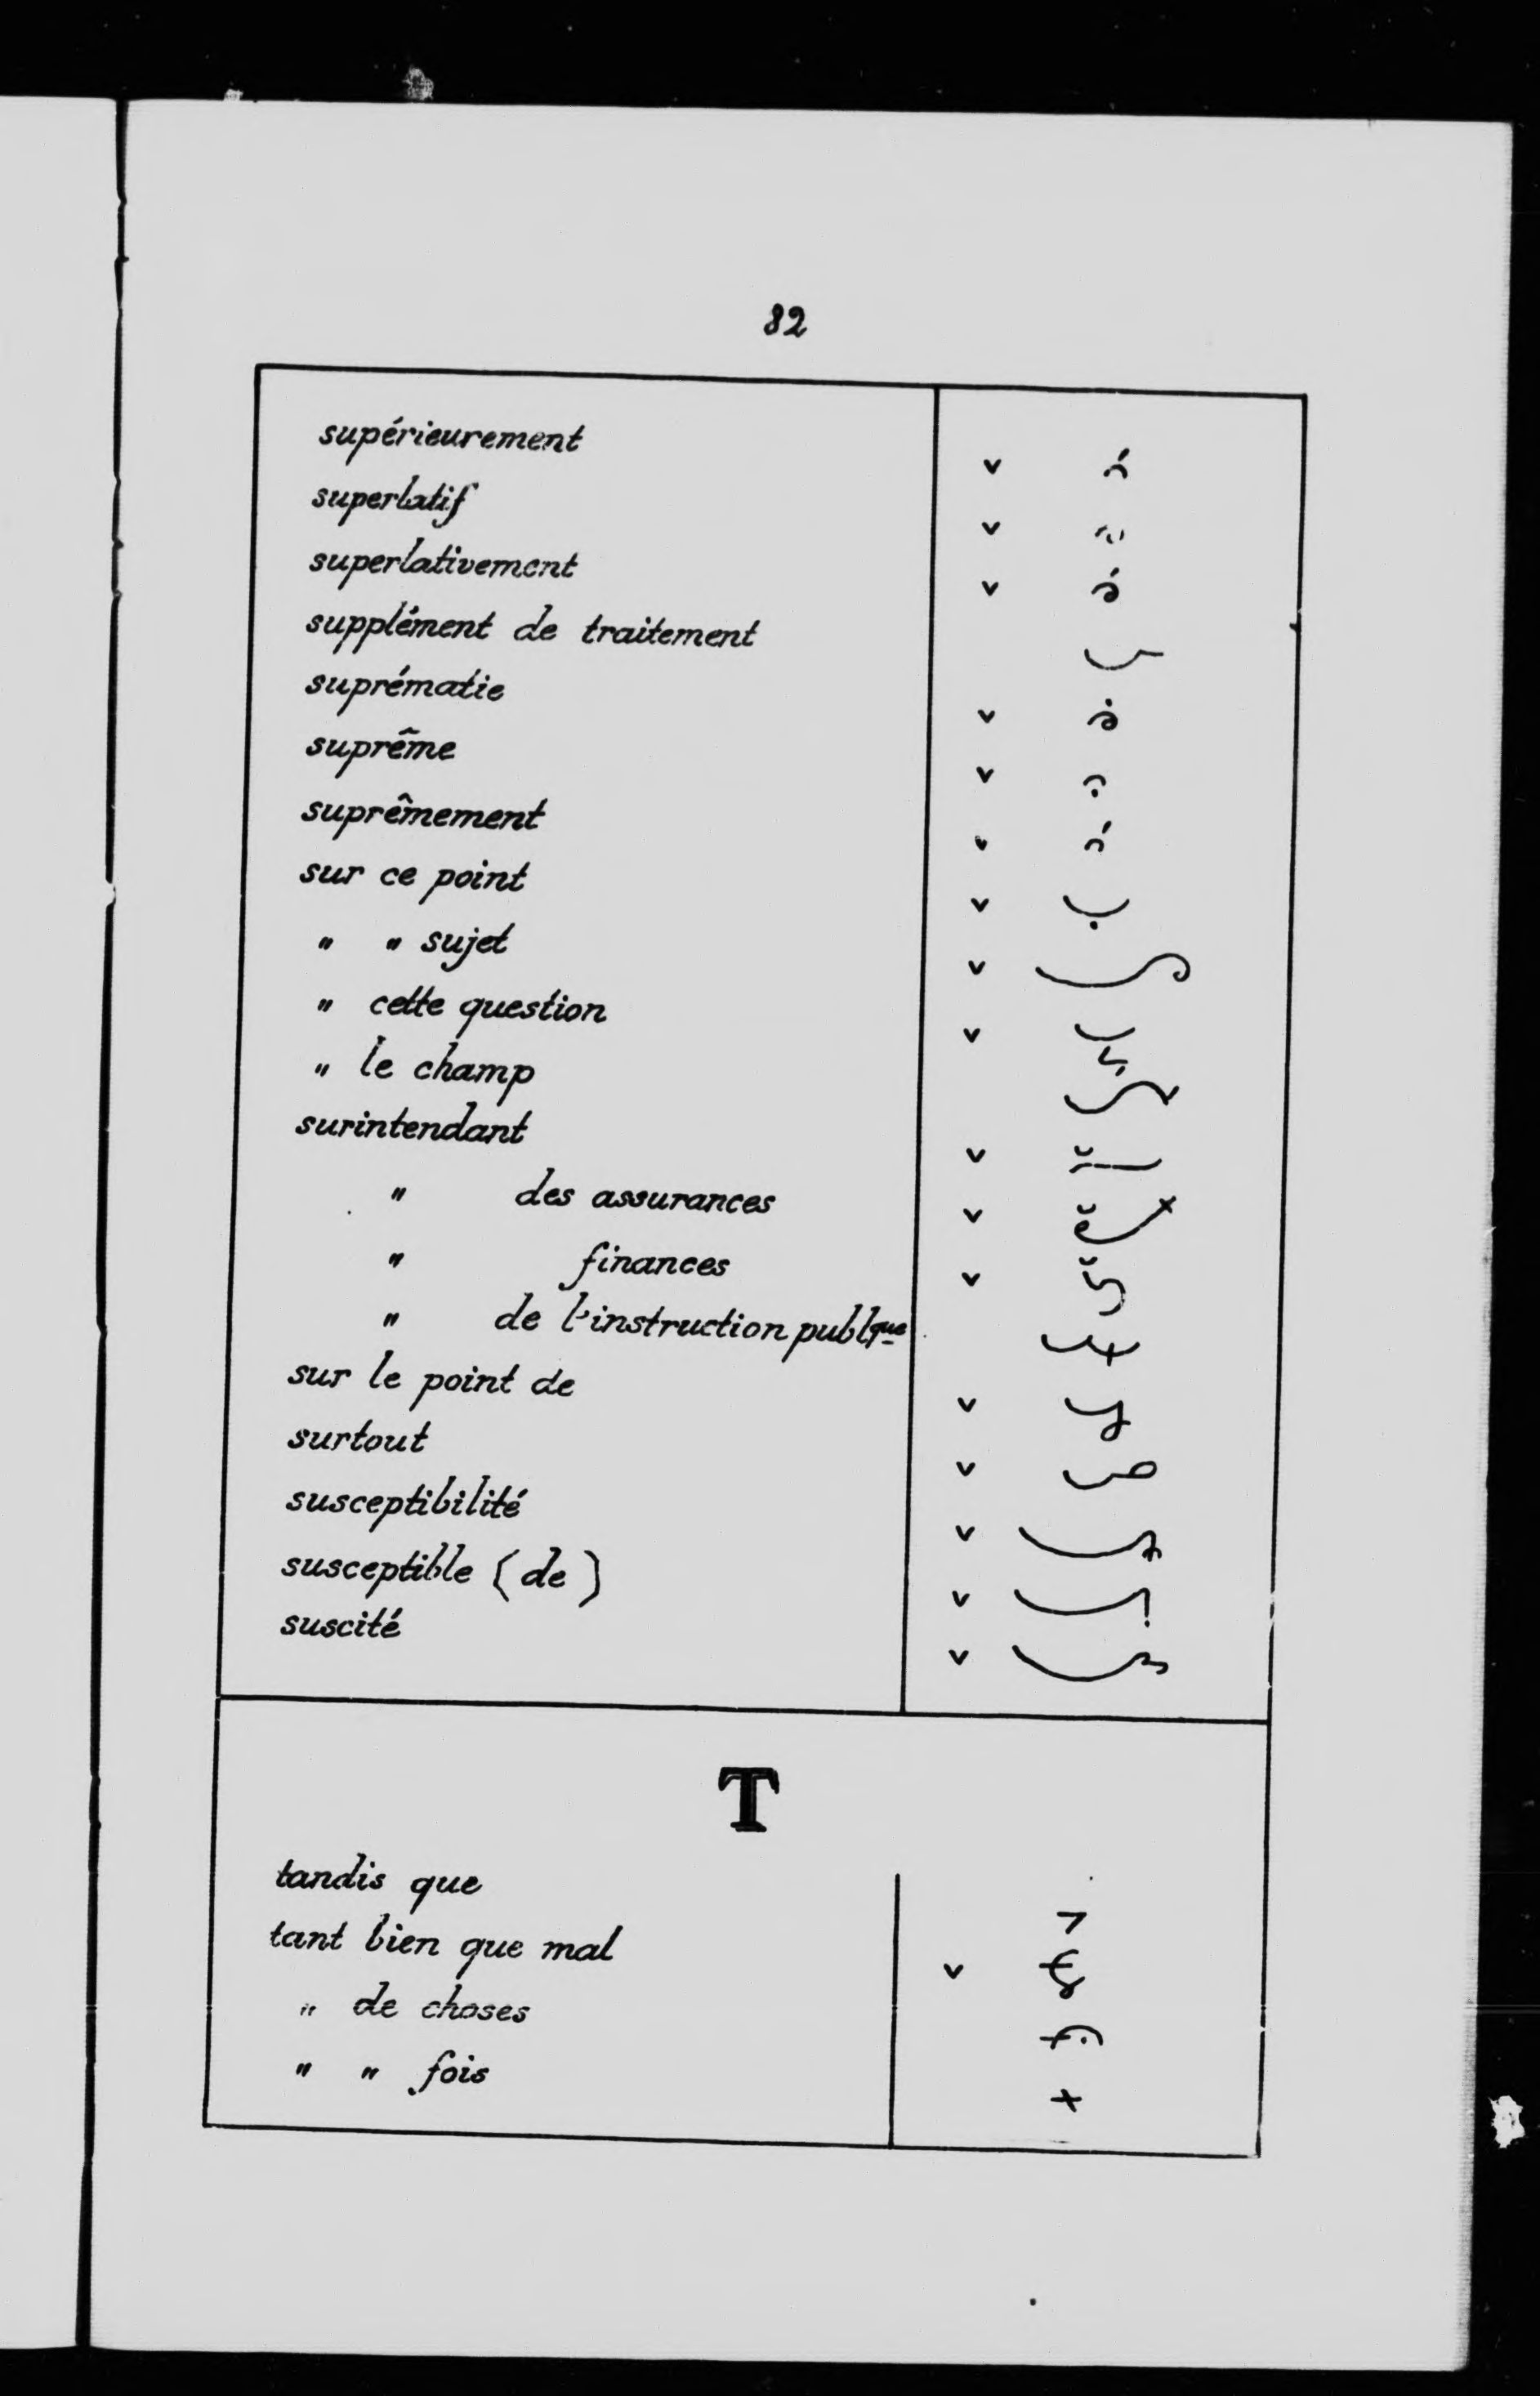 82
supérieurement v
superlatif v
superlativement v
supplément de traitement
suprématie v
suprême v
suprêmement v
sur ce point v
" " sujet v
" cette question v
" le champ
surintendant v
" des assurances v
" finances v
" de l'instruction publque
sur le point de v
surtout v
susceptibilité v
susceptible (de) v
suscité v
T
tandis que
tant bien que mal v
" de choses
" " fois